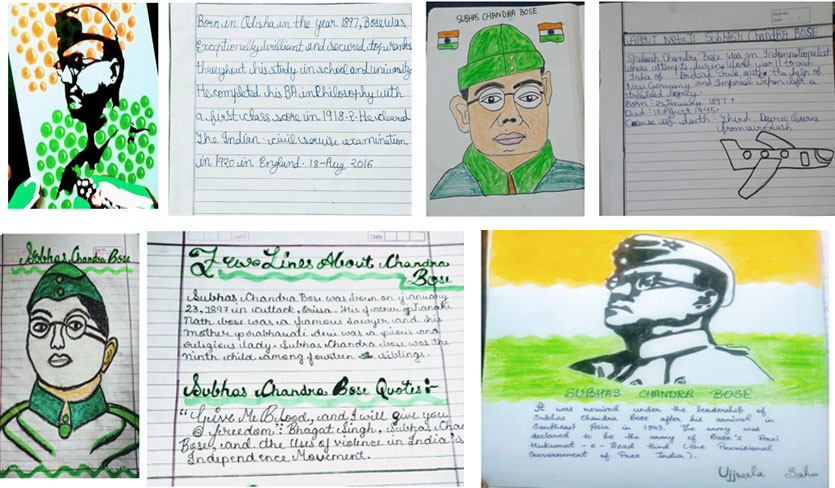 Born in Odisha in the year 1897, Bose was
Exceptionally brilliant and secured top ranks
throughout his study in school and university
He completed his BA in Philosophy with
a first class score in 1918. 2. He cleared
The Indian civil service examination
in 1920 in England. 18-Aug 2016
SUBHAS CHANDRA BOSE
ABOUT NETAJI SUBHASH CHANDRA BOSE
Subhash Chandra Bose was an
whose attempts during World war II to
India of British rule with the help of
Nazi Germany and Imperial Japan left a
troubled legacy.
Born: 23 January 1897.
Died: 18 August 1945.
Cause of death: Third Degree burns
from aircrash
Subhas Chandra Bose
Few Lines About Chandra
Bose
Subhas Chandra Bose was born on January
23, 1897 in Cuttack, Orissa. His father Janaki
Nath bose was a famous lawyer and his
mother prabhavati devi was a pious and
religious lady. Subhas Chandra bose was the
ninth child among fourteen siblings.
Subhas Chandra Bose Quotes:-
"Give Me Blood, and I will give you
freedom": Bhagat Singh, Subhas Cha
Bose, and the Uses of violence in India's
Independence Movement.
SUBHAS CHANDRA BOSE
It was revived under the leadership of
Subhas Chandra Bose after his arrival in
Southeast Asia in 1943. The army was
declared to be the army of Bose's Arzi
Hukumat-e-Azad Hind (the Provisional
Government of Free India).
Ujjwala Sahu